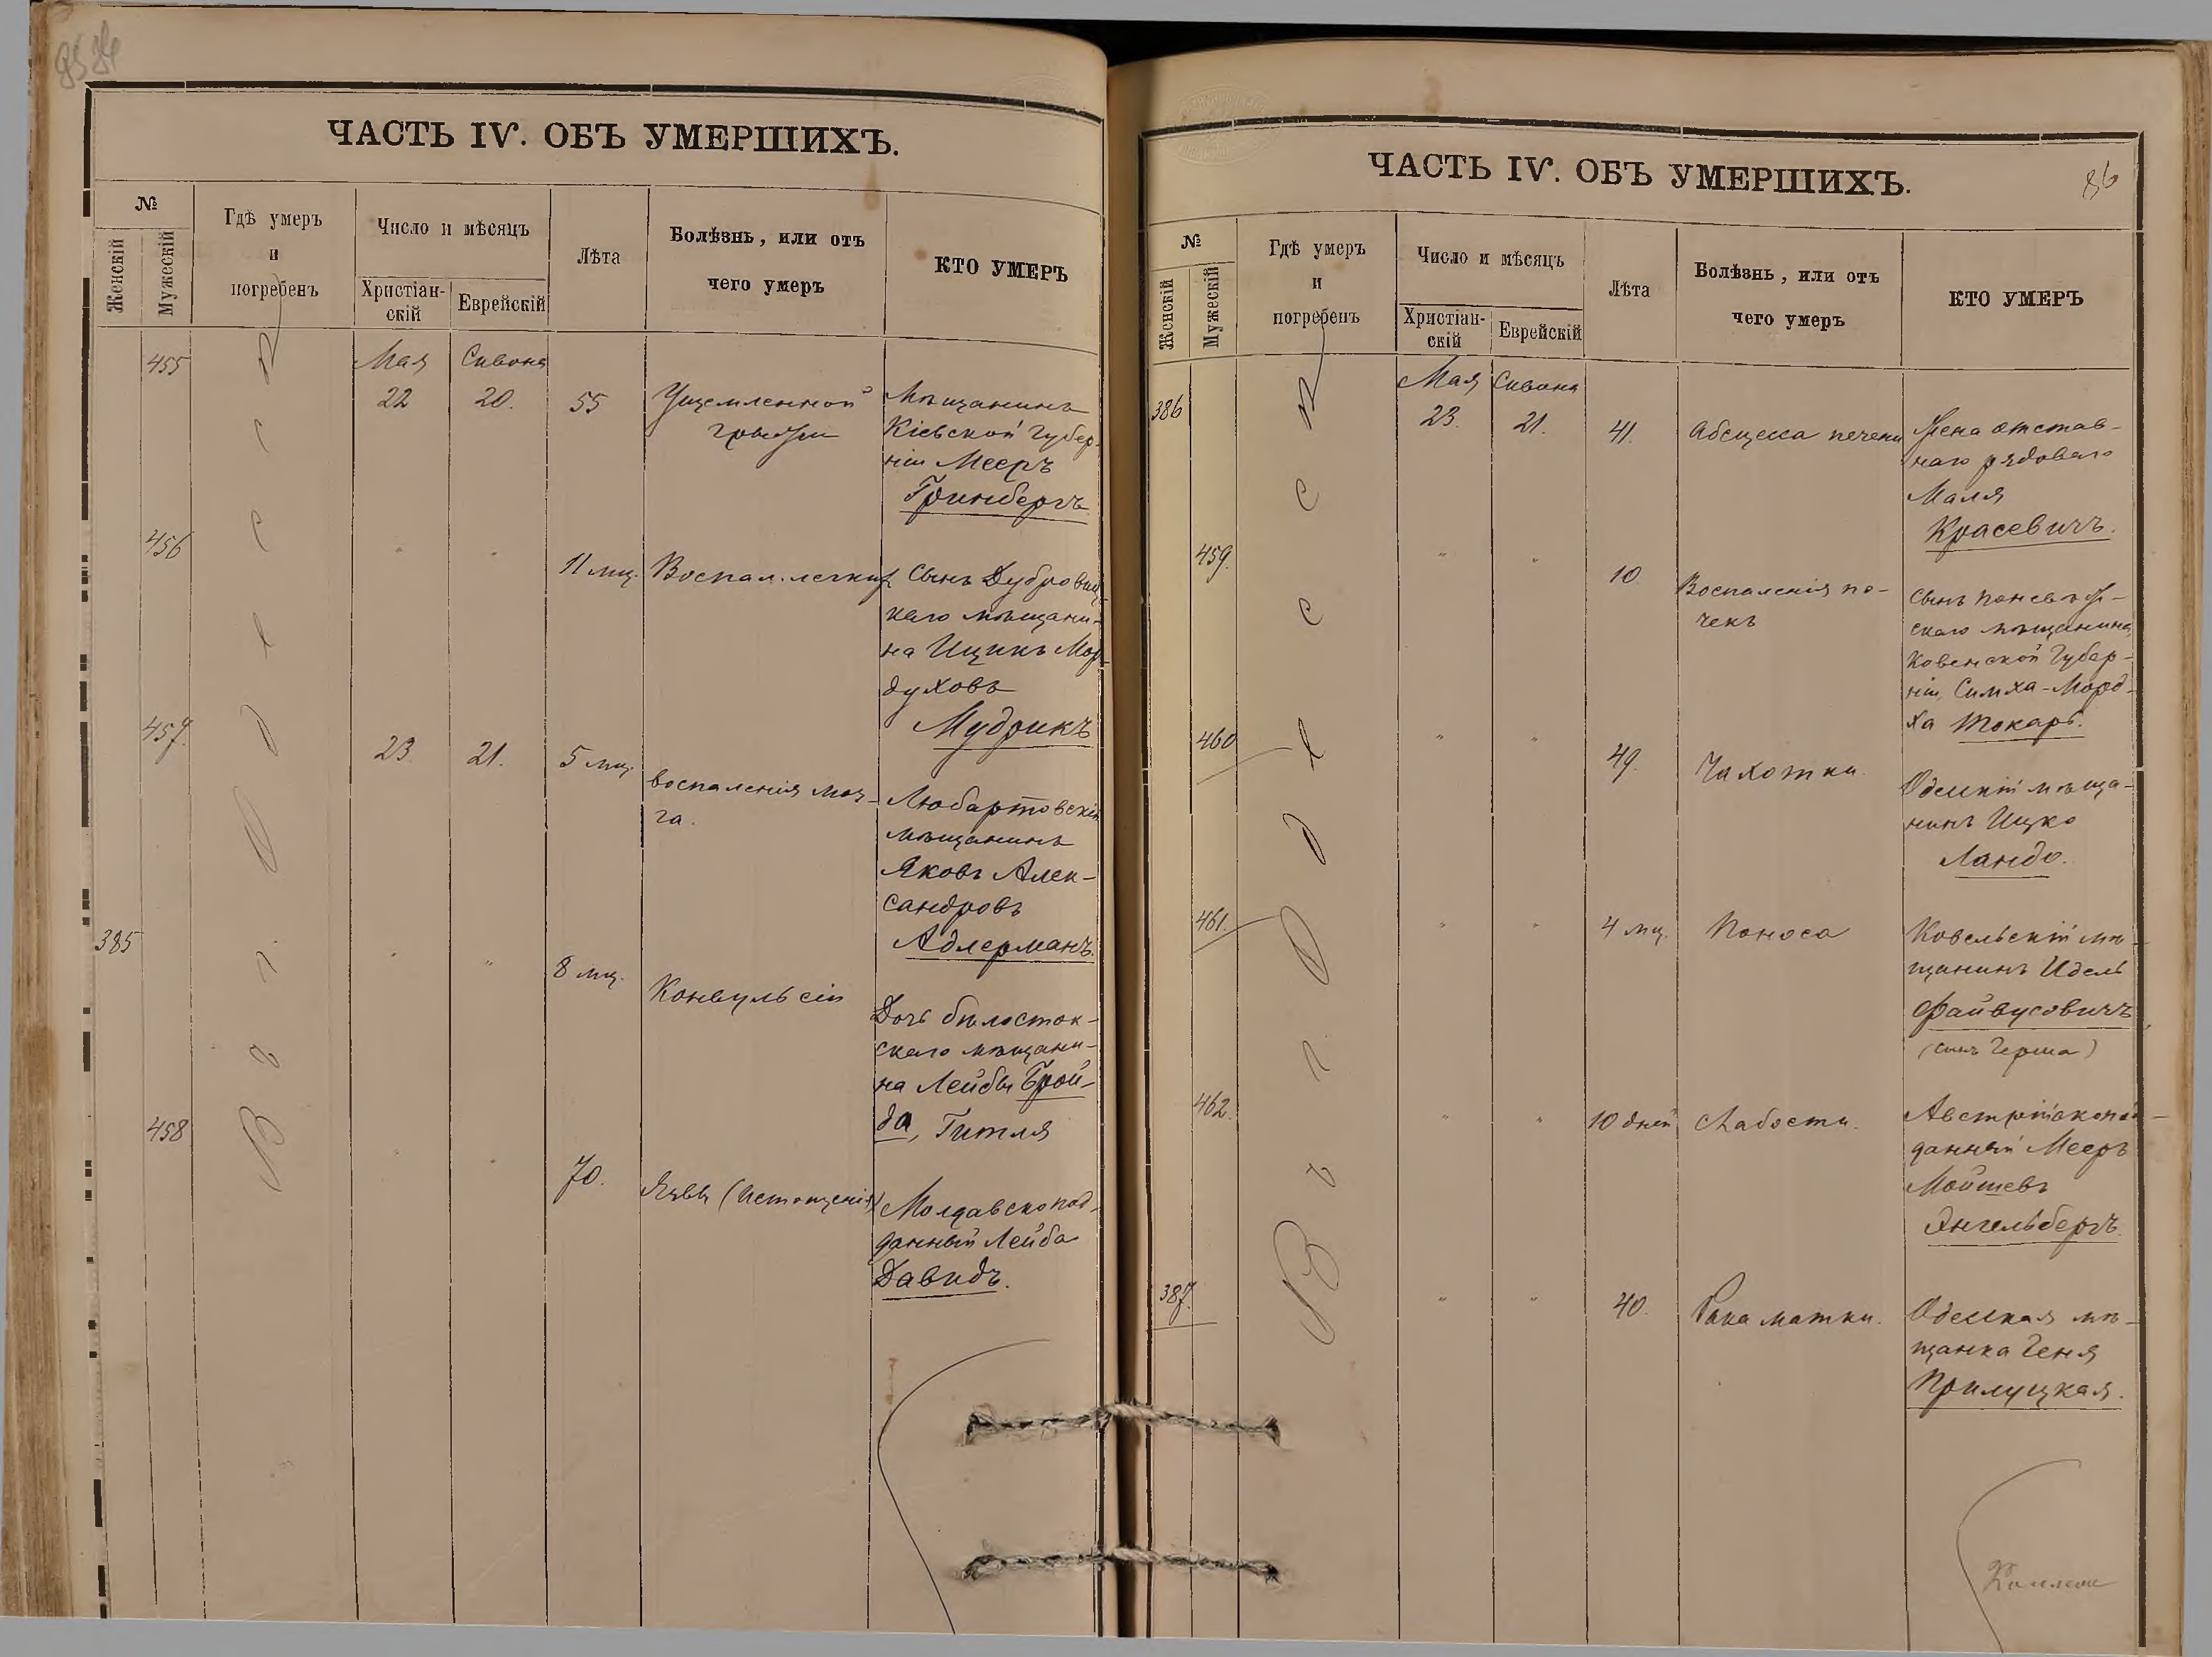 ЧАСТЬ IV. ОБЪ УМЕРШИХЪ.
№
Женскій
Мужескій
Гдѣ умеръ
и
погребенъ
Число и мѣсяцъ
Христіан-
скій
Еврейскій
Лѣта
Болѣзнь, или отъ
чего умеръ
КТО УМЕРЪ
Въ Одессѣ
455
Мая
22
Сивона
20.
55
Ущемленной
грыжи
Мѣщанинъ
Кіевской Губер-
ніи Мееръ
Гринбергъ
456
"
"
11 мц.
Воспал. легких
Сынъ Дубровиц-
каго мѣщани-
на Ицикъ Мор-
духовъ
Мудрикъ
457.
23
21.
5 мц.
воспаленія моз-
га.
Любартовскій
мѣщанинъ
Яковъ Алек-
сандровъ
Адлерманъ.
385
"
"
8 мц.
Конвульсіи
Дочь бѣлосток-
скаго мѣщани-
на Лейбы Брой-
да, Гитля
458
"
"
70.
Язвы (истощенія)
Молдавскопод-
данный Лейба
Давидъ.
ЧАСТЬ IV. ОБЪ УМЕРШИХЪ.
86
№
Женскій
Мужескій
Гдѣ умеръ
и
погребенъ
Число и мѣсяцъ
Христіан-
скій
Еврейскій
Лѣта
Болѣзнь, или отъ
чего умеръ
КТО УМЕРЪ
Въ Одессѣ
386
Мая
23.
Сивона
21.
41.
Абсцесса печени
Жена отстав-
наго рядоваго
Маля
Красевичъ.
459.
"
"
10.
Воспаленія по-
чекъ
Сынъ поневѣж-
скаго мѣщанина,
Ковенской Губер-
ніи, Симха-Морд-
ха Токарь.
460
"
"
49.
Чахотки
Одесскій мѣща-
нинъ Ицко
Ландо.
461.
"
"
4 мц.
Поноса
Ковельскій мѣ-
щанинъ Идель
Файвусовичъ
(сынъ Герша)
462.
"
"
10 дней
Слабости.
Австрійскопод-
данный Мееръ
Мойшевъ
Энгельбергъ.
387.
"
"
40.
Рака матки.
Одесская мѣ-
щанка Геня
Прилуцкая.